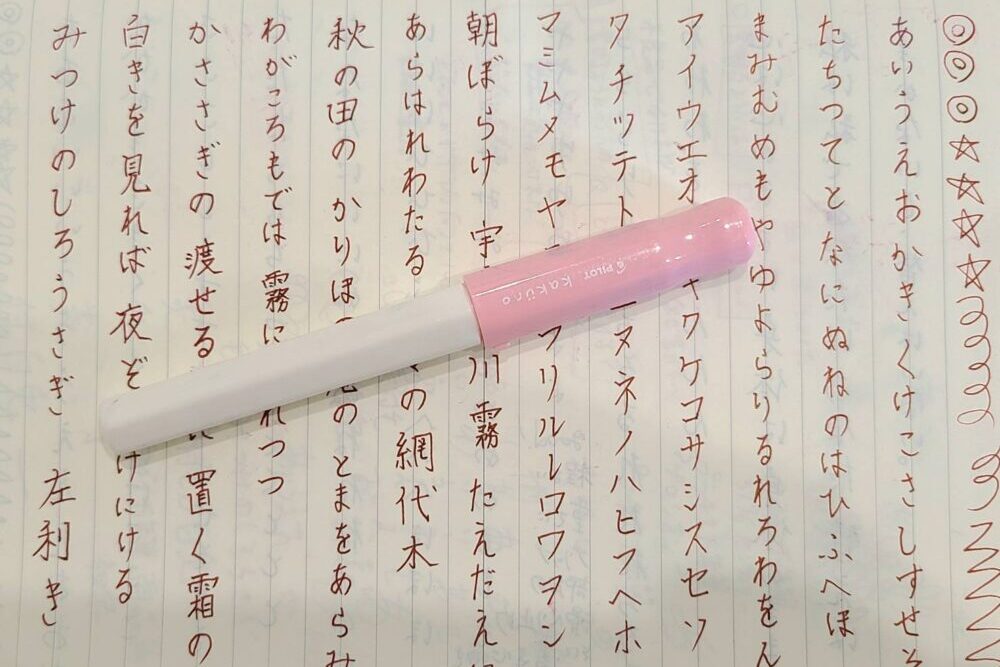 ◎◎◎☆☆☆☆
あいうえおかきくけこさしすせそ
たちつてとなにぬねのはひふへほ
まみむめもやゆよらりるれろわをん
アイウエオ キクケコサシスセソ
タチツテト ニヌネノハヒフヘホ
マミムメモヤ リルレロワヲン
朝ぼらけ 宇 川霧 たえだえに
あらはれわたる の網代木
秋の田の かりほ の とまをあらみ
わがころもでは 霧に れつつ
かささぎの 渡せる に 置く霜の
白きを見れば 夜ぞ けにける
みつけのしろうさぎ 左利き
PILOT kaküno